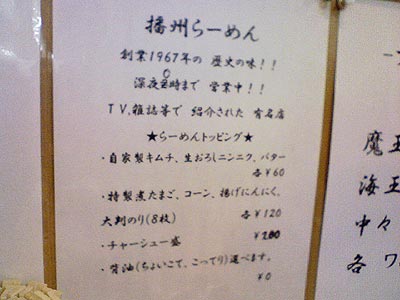 播州らーめん
創業1967年の 歴史の味！！
深夜0時まで 営業中！！
TV、雑誌等で 紹介された 有名店
★らーめんトッピング★
・自家製キムチ、生おろしニンニク、バター
各￥60
・特製煮たまご、コーン、揚げにんにく、
大判のり(8枚) 各￥120
・チャーシュー盛
・背油(ちょいこて、こってり)選べます。
￥0
魔王
海王
中々
各